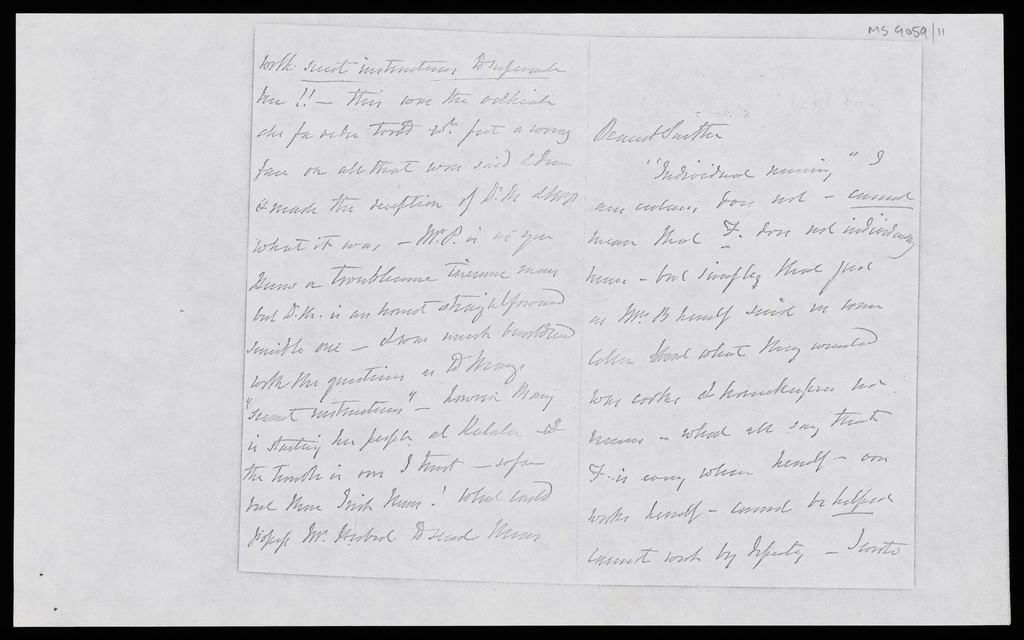 MS 9059/11
with secret instructions to supersede
her !! — this was the
put a wrong
face on all that was said & done
& made the reception of D. M.
what it was, — Mr. P. is as you
know a troublesome tiresome man
but D. M. is an honest straightforward
sensible one — I was much bewildered
with the questions as to Mary's
"secret instructions" — however Mary
is starting her people at Kulali &
the trouble is over I trust — so far
but these Irish Nuns ! What could
possess Mr. Herbert to send Nuns
Dearest Parthe
"Individual nursing" I
am certain, does not — cannot
mean that F. does not individually
nurse — but simply that just
as Mrs. B herself said in some
letter that what they wanted
was cooks & housekeepers not
nurses — what all say that
F. is every where herself — over
works herself — cannot be helped
cannot work by deputy — I wrote